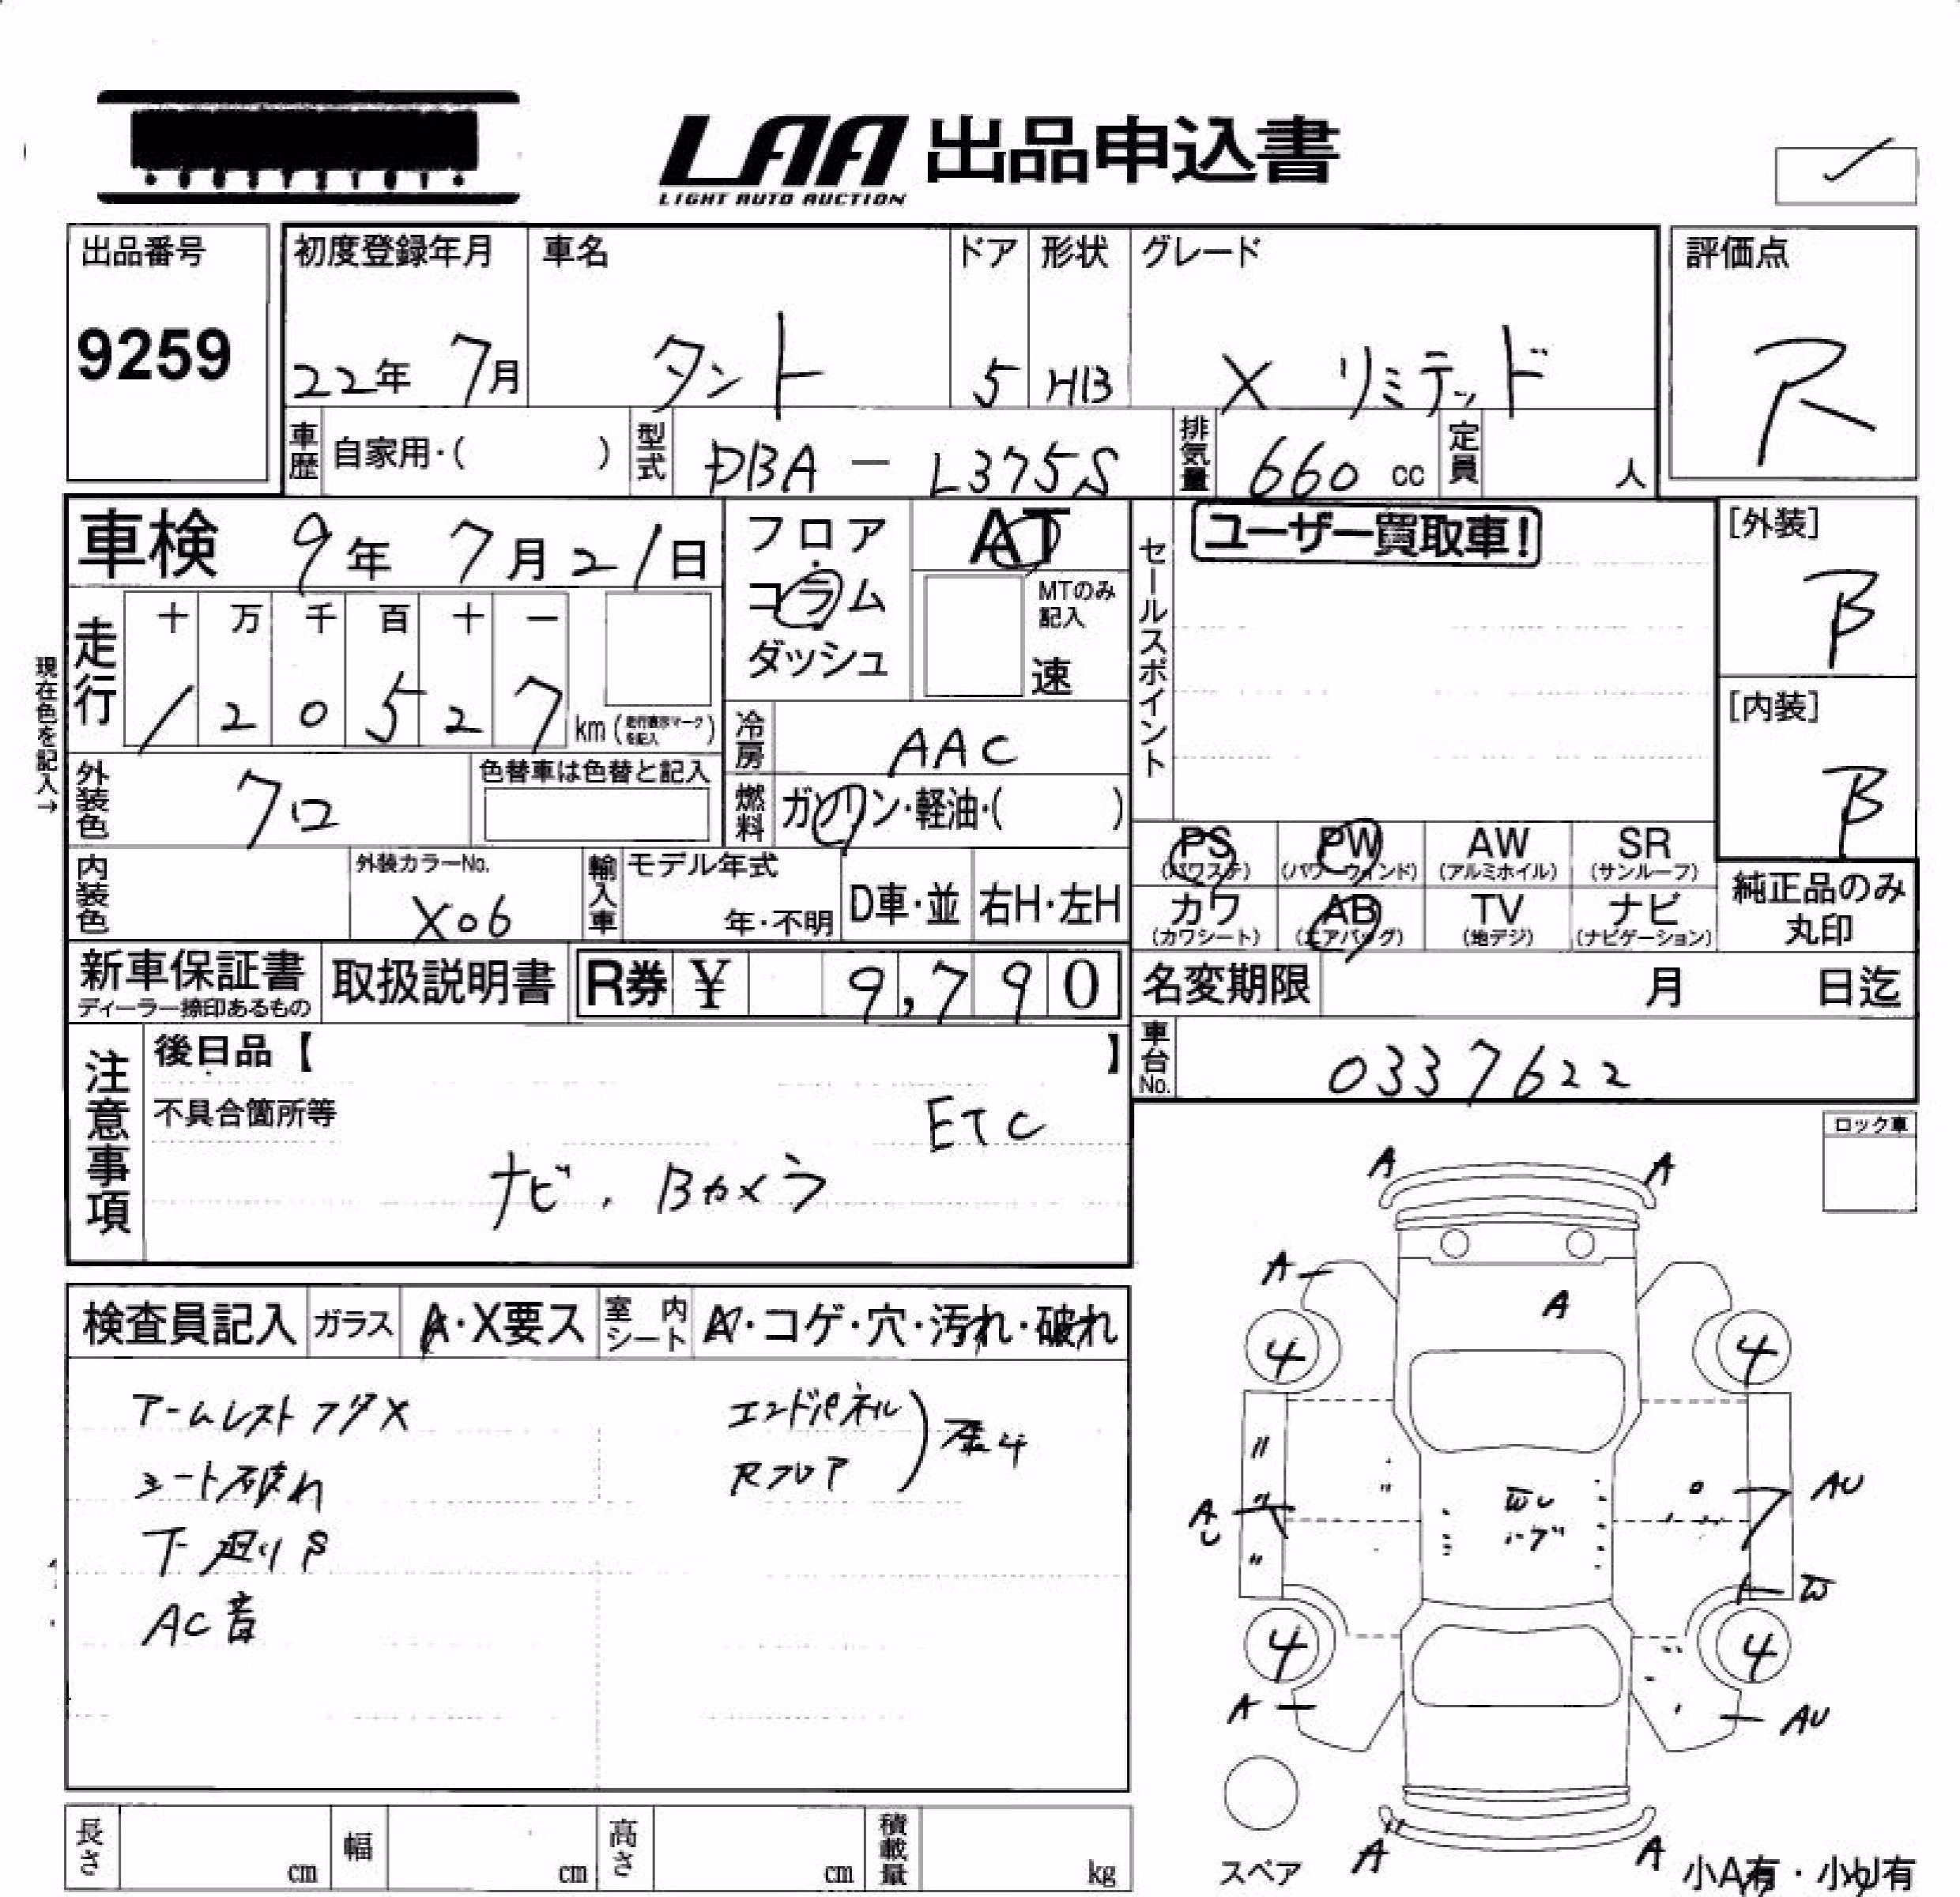 LAA 出品申込書
LIGHT AUTO AUCTION
出品番号
9259
初度登録年月
22年 7月
車名
タント
ドア
5
形状
HB
グレード
X リミテッド
評価点
R
車歴 自家用・( )
型式 DBA - L375S
排気量 660 cc
定員 人
車検 9年 7月21日
フロア
コラム
ダッシュ
AT
MTのみ記入
速
セールスポイント
ユーザー買取車!
[外装]
B
[内装]
B
現在色を記入→
走行
十 万 千 百 十 一
1 2 0 5 2 7 km (走行表示マークを記入)
冷房 AAC
外装色 クロ
色替車は色替と記入
燃料 ガソリン・軽油・( )
内装色
外装カラーNo.
X06
輸入車
モデル年式
年・不明
D車・並
右H・左H
PS (パワステ)
PW (パワーウィンド)
AW (アルミホイル)
SR (サンルーフ)
カワ (カワシート)
AB (エアバッグ)
TV (地デジ)
ナビ (ナビゲーション)
純正品のみ
丸印
新車保証書
ディーラー捺印あるもの
取扱説明書
R券 ¥ 9,790
名変期限 月 日迄
車台No. 0337622
注意事項
後日品【 】
不具合箇所等
ETC
ナビ, Bカメラ
ロック車
検査員記入
ガラス A・X要ス
室内シート A・コゲ・穴・汚れ・破れ
アームレストフタX
シート破れ
下廻りS
AC音
エンドパネル
Rフロア
A
A
A
A
4
4
〃
〃
〃
AU
AU
W
4
4
A
AU
A
A
スペア
小A有・小U有
長さ cm
幅 cm
高さ cm
積載量 kg